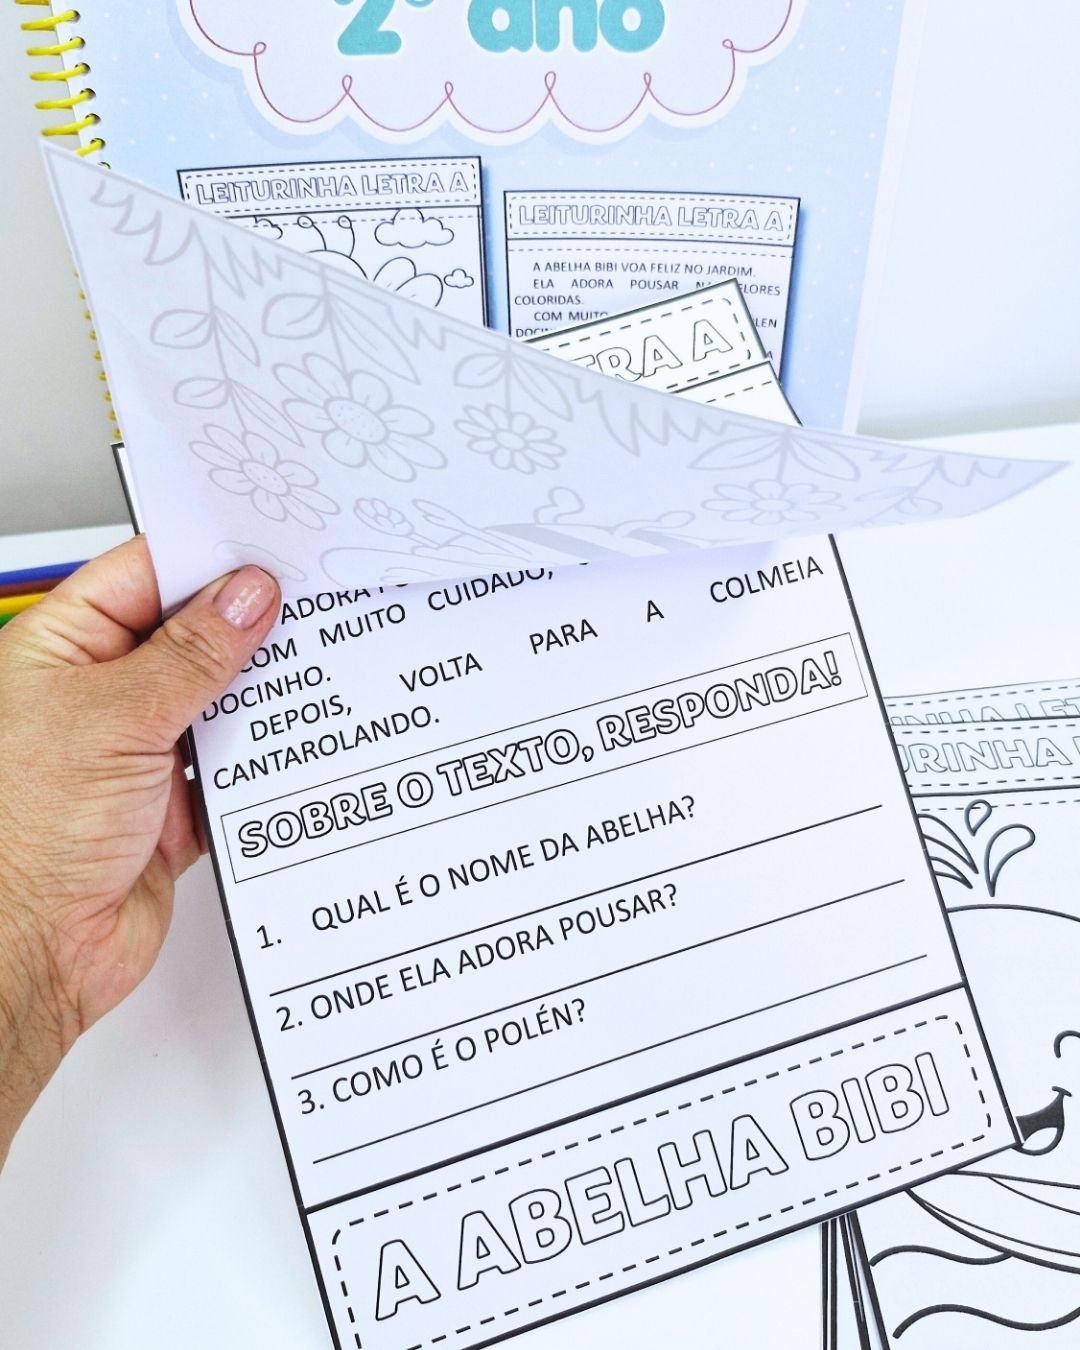 2º ano
LEITURINHA LETRA A
LEITURINHA LETRA A
A ABELHA BIBI VOA FELIZ NO JARDIM.
ELA ADORA POUSAR FLORES
COLORIDAS.
COM MUITO
RA A
ADORA
COM MUITO CUIDADO,
DOCINHO.
DEPOIS, VOLTA PARA A COLMEIA
CANTAROLANDO.
SOBRE O TEXTO, RESPONDA!
1. QUAL É O NOME DA ABELHA?
2. ONDE ELA ADORA POUSAR?
3. COMO É O POLÉN?
A ABELHA BIBI